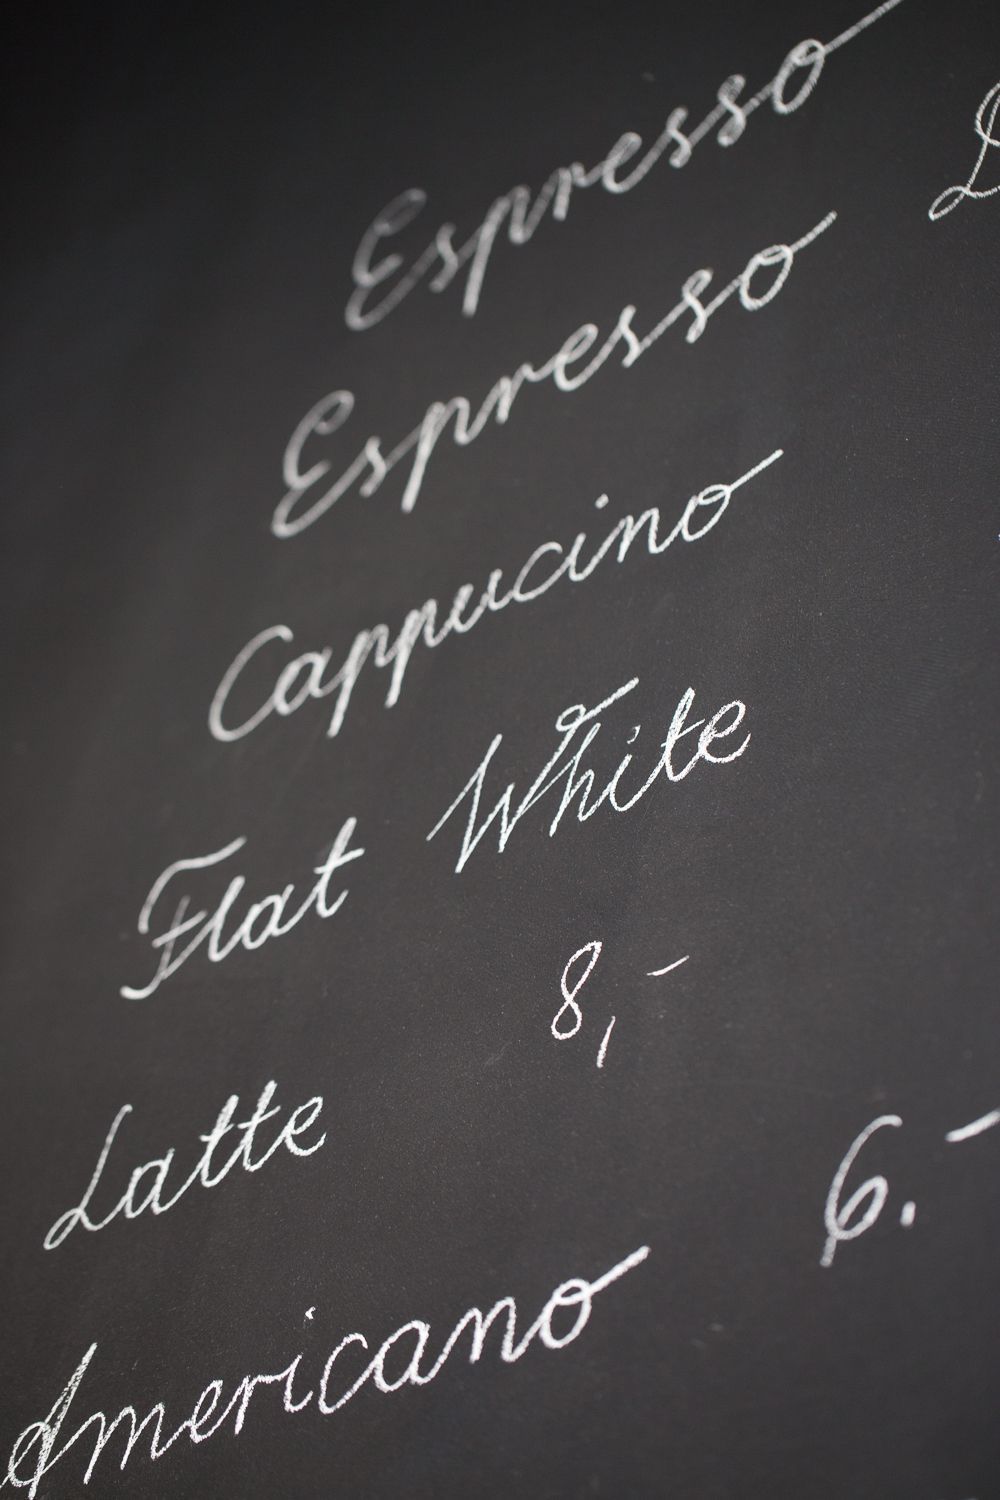 Espresso
Espresso D
Cappucino
Flat White
Latte 8,-
Americano 6.-